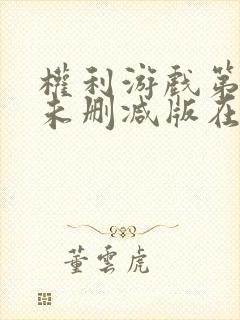 權利游戲第
未删减版在
董雲虎